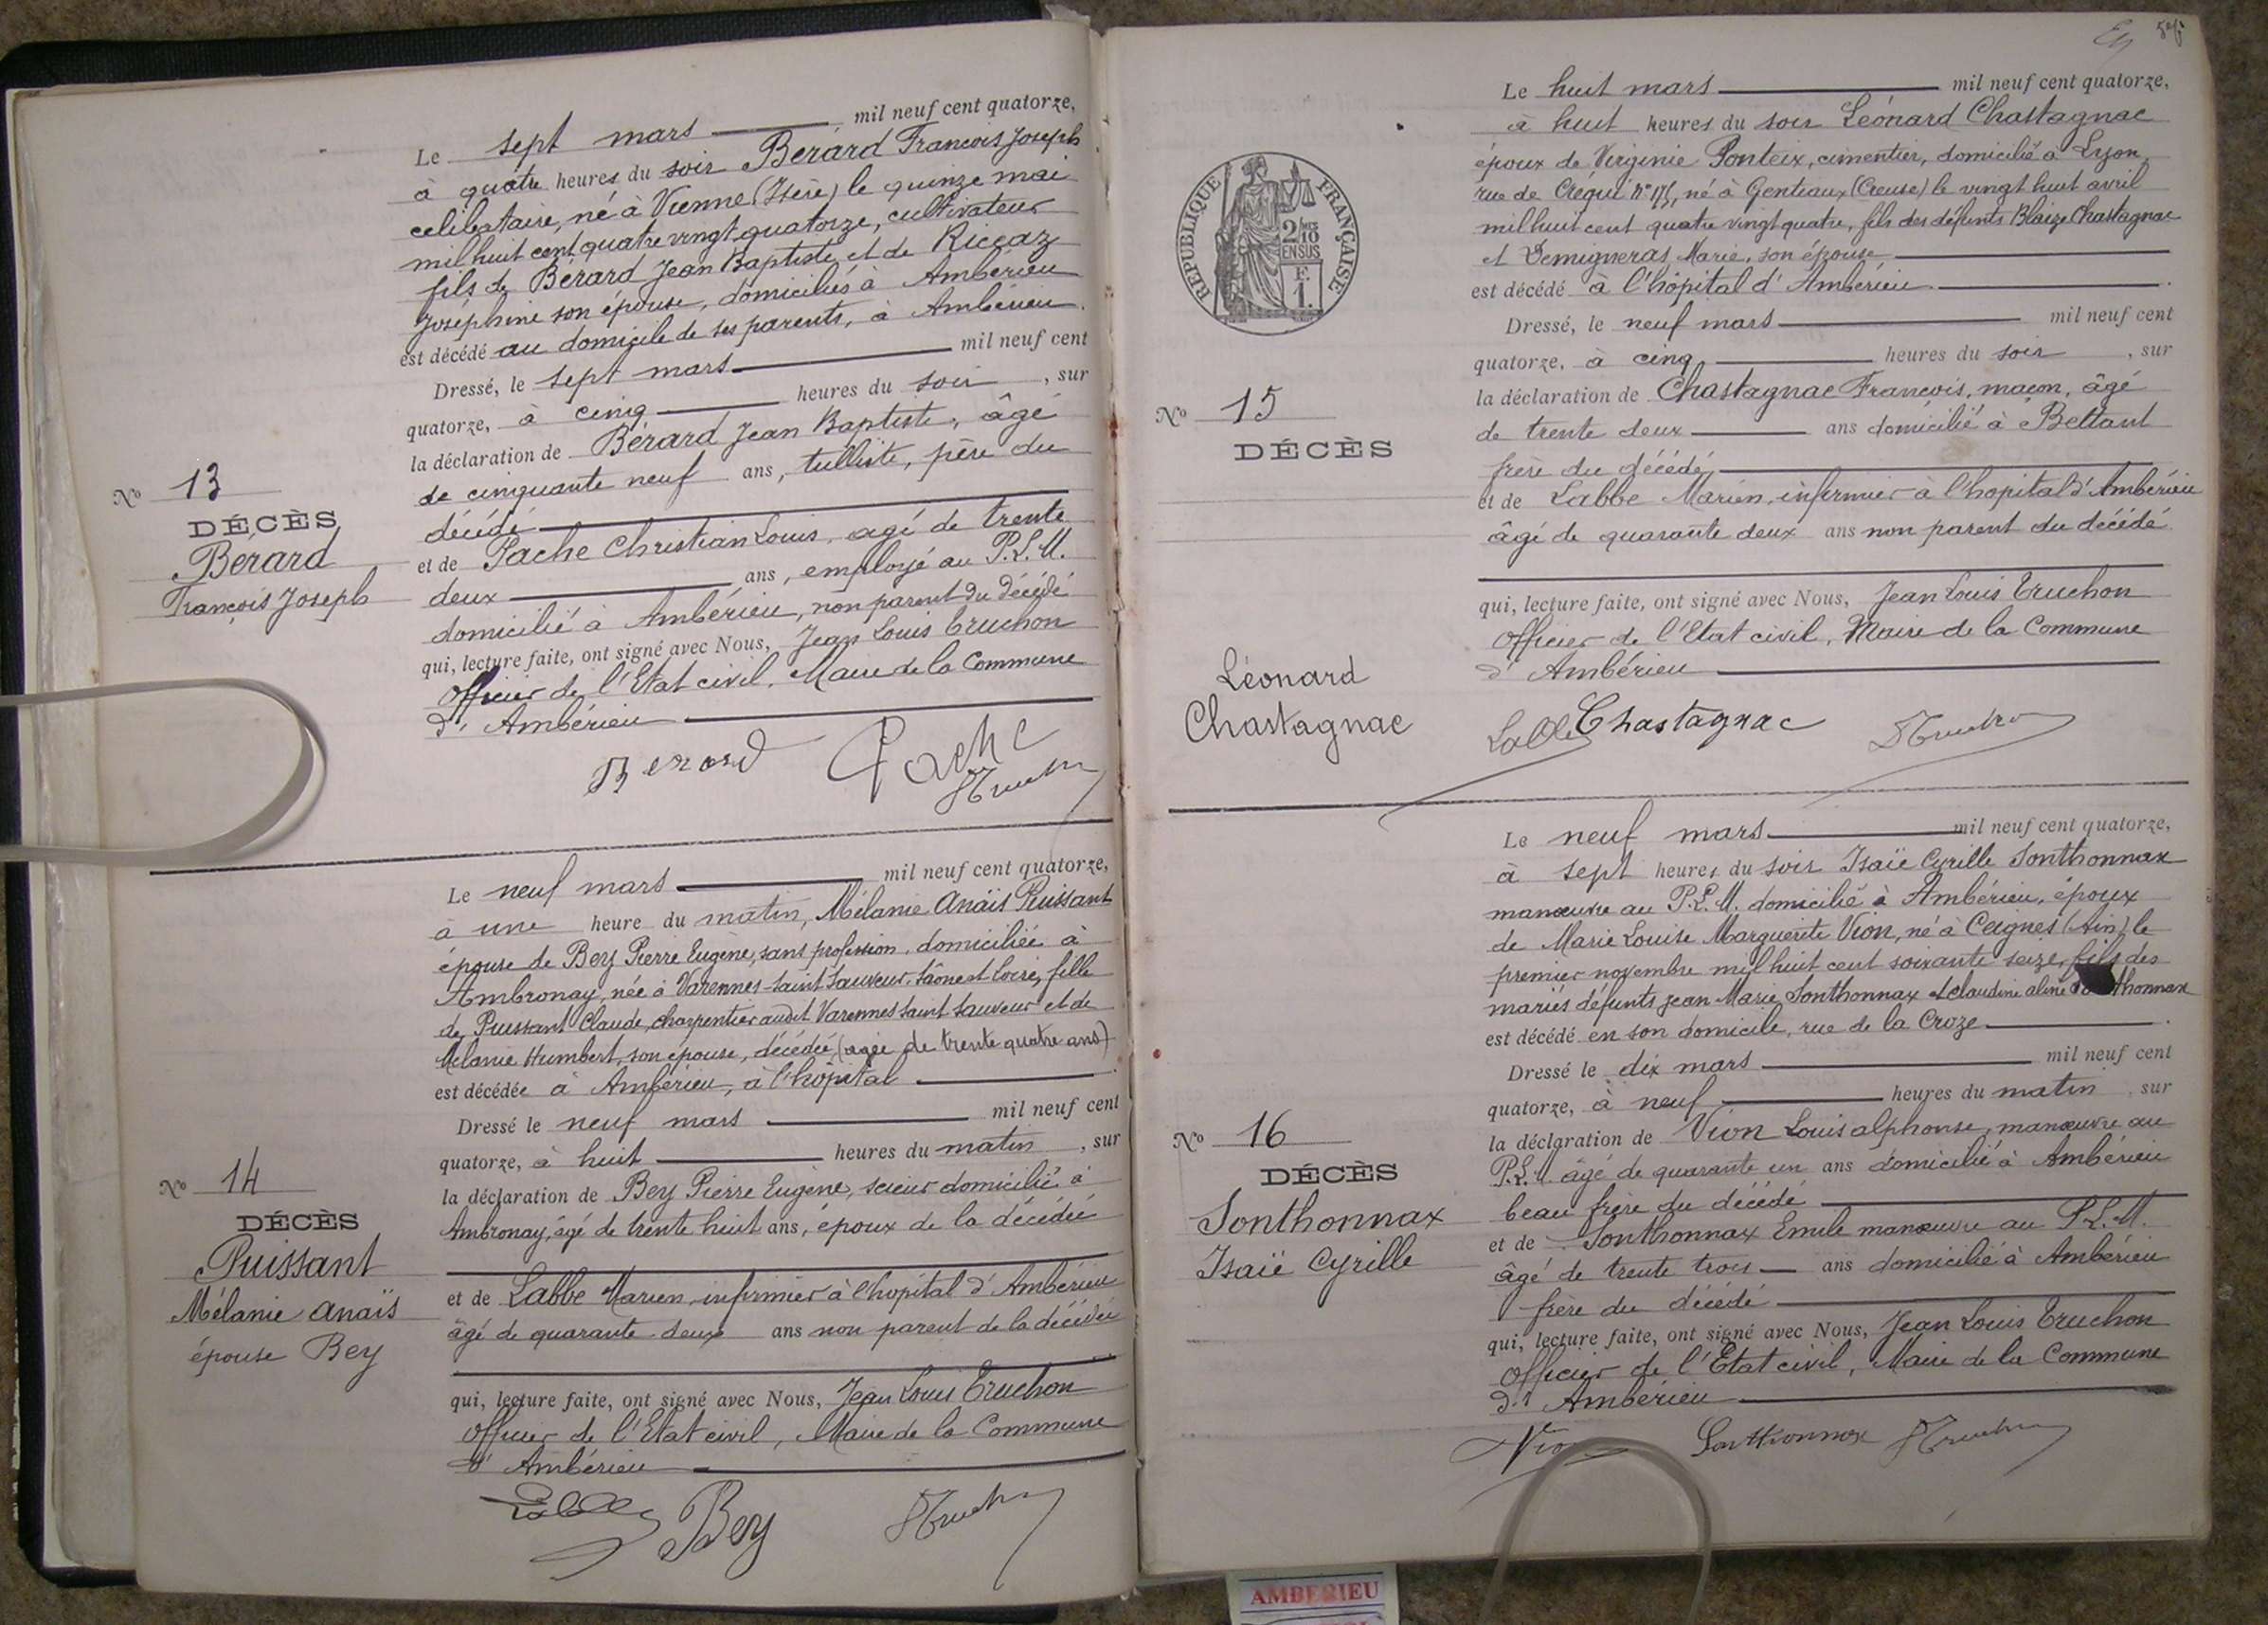 Le sept mars mil neuf cent quatorze,
à quatre heures du soir Bérard François Joseph
celibataire, né à Vienne (Isère) le quinze mai
mil huit cent quatre vingt quatorze, cultivateur
fils de Bérard Jean Baptiste et de Riccaz
Joséphine son épouse, domiciliés à Ambérieu
est décédé au domicile de ses parents, à Ambérieu.
Dressé, le sept mars mil neuf cent
quatorze, à cinq heures du soir, sur
la déclaration de Bérard Jean Baptiste, âgé
de cinquante neuf ans, tulliste, père du
décédé
et de Pache Christian Louis, agé de trente
deux ans, employé au P.L.M.
domicilié à Ambérieu, non parent du décédé
qui, lecture faite, ont signé avec Nous, Jean Louis Truchon
Officier de l'Etat civil, Maire de la Commune
d'Ambérieu
Berard Pache
No 13
DÉCÈS
Bérard
François Joseph
Le neuf mars mil neuf cent quatorze,
à une heure du matin, Mélanie Anaïs Puissant
épouse de Bey Pierre Eugène, sans profession, domiciliée à
Ambronay, née à Varennes-Saint Sauveur, Saône et Loire, fille
de Puissant Claude, charpentier audit Varennes Saint Sauveur et de
Mélanie Humbert, son épouse, décédée, (agée de trente quatre ans)
est décédée à Ambérieu, à l'hôpital
Dressé le neuf mars mil neuf cent
quatorze, à huit heures du matin, sur
la déclaration de Bey Pierre Eugène, scieur domicilié à
Ambronay, âgé de trente huit ans, époux de la décédée
et de Labbe Marien, infirmier à l'hopital d'Ambérieu
âgé de quarante deux ans non parent de la décédée
qui, lecture faite, ont signé avec Nous, Jean Louis Truchon
Officier de l'Etat civil, Maire de la Commune
d'Ambérieu
Bey
No 14
DÉCÈS
Puissant
Mélanie Anaïs
épouse Bey
Le huit mars mil neuf cent quatorze,
à huit heures du soir Léonard Chastagnac
époux de Virginie Ponteix, cimentier, domicilié à Lyon,
rue de Créqui n° 175, né à Gentiaux (Creuse) le vingt huit avril
mil huit cent quatre vingt quatre, fils des défunts Blaize Chastagnac
et Demigneras Marie, son épouse
est décédé à l'hôpital d'Ambérieu.
Dressé, le neuf mars mil neuf cent
quatorze, à cinq heures du soir, sur
la déclaration de Chastagnac François, maçon, âgé
de trente deux ans domicilié à Bettant
frère du décédé,
et de Labbe Marien, infirmier à l'hopital d'Ambérieu
âgé de quarante deux ans non parent du décédé
qui, lecture faite, ont signé avec Nous, Jean Louis Truchon
Officier de l'Etat civil, Maire de la Commune
d'Ambérieu
Chastagnac
REPUBLIQUE FRANÇAISE
2/10
EN SUS
F.
1.
No 15
DÉCÈS
Léonard
Chastagnac
Le neuf mars mil neuf cent quatorze,
à sept heures du soir Isaïe Cyrille Sonthonnax
manœuvre au P.L.M. domicilié à Ambérieu, époux
de Marie Louise Marguerite Vion, né à Ceignes (Ain) le
premier novembre mil huit cent soixante seize, fils des
mariés défunts Jean Marie Sonthonnax et claudine aline
est décédé en son domicile, rue de la Croze.
Dressé le dix mars mil neuf cent
quatorze, à neuf heures du matin, sur
la déclaration de Vion Louis alphonse, manœuvre au
P.L.M. âgé de quarante un ans domicilié à Ambérieu
beau frère du décédé
et de Sonthonnax Emile manœuvre au P.L.M.
âgé de trente trois ans domicilié à Ambérieu
frère du décédé
qui, lecture faite, ont signé avec Nous, Jean Louis Truchon
Officier de l'Etat civil, Maire de la Commune
d'Ambérieu
Vion Sonthonnax
No 16
DÉCÈS
Sonthonnax
Isaïe Cyrille
AMBERIEU